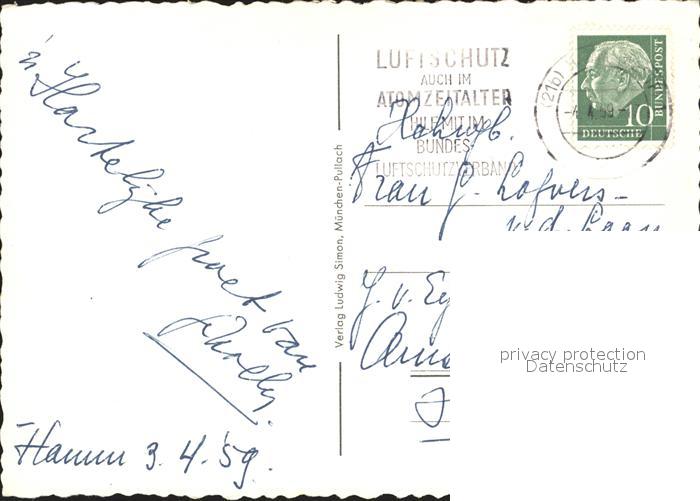 'n Hartelijke groet van
Hamm 3.4.'59.
Verlag Ludwig Simon, München-Pullach
LUFTSCHUTZ
AUCH IM
ATOMZEITALTER
HILF MIT IM
BUNDES-
LUFTSCHUTZVERBAND
(21b)
-4.4.59-
10
DEUTSCHE
BUNDESPOST
Frau
v.d. Laan
privacy protection
Datenschutz